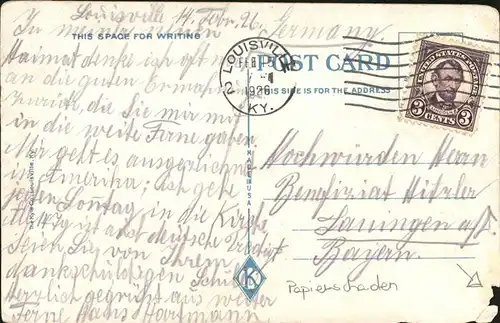 Louisville 14. Febr. 26. Germany.
In meine
THIS SPACE FOR WRITING
POST CARD
Heimat denke ich oft
THIS SIDE IS FOR THE ADDRESS
LOUISVILLE
FEB
1926
KY.
2
UNITED STATES POSTAGE
3 CENTS 3
an die guten
zurück, die Sie mir mit
in die weite Ferne gaben.
Mir geht es ausgezeichnet
in Amerika; ich gehe
jeden Sontag in die Kirche
ist deutsche Predigt
von Ihrem
dankschuldigen Schüler
Herzlich gegrüßt aus weiter
Ferne Hans Hartmann
MADE IN USA
K
Hochwürden Herrn
Benefiziat Hitzler
Lauingen a/D.
Bayern
Papierschaden